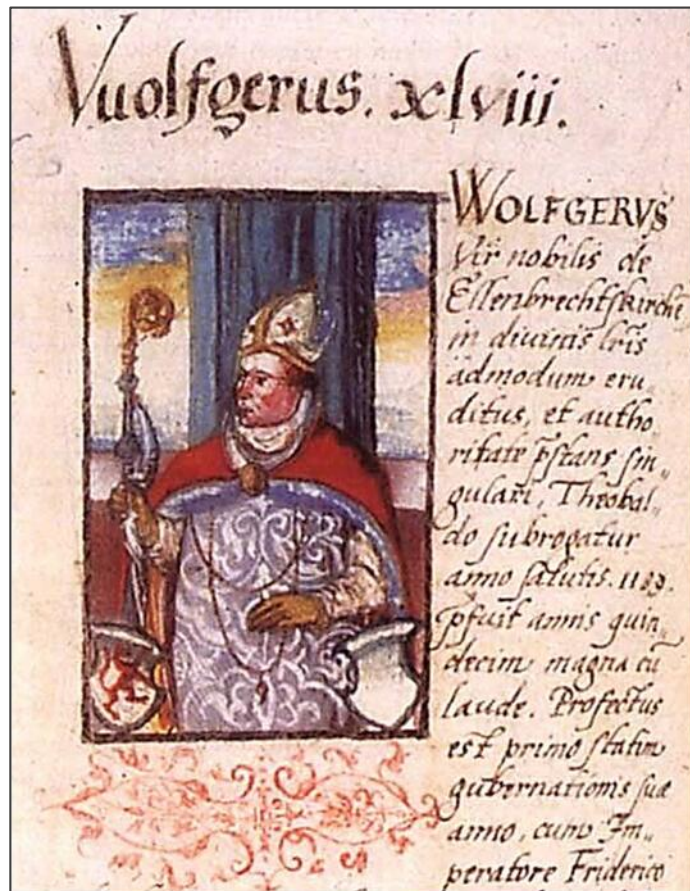 Vuolfgerus. xlviii.
WOLFGERVS
Vir nobilis de
Ellenbrechtskirchē
in divinis lr̄is
admodum eru„
ditus, et autho„
ritate p̄stans sin„
gulari, Theobal„
do subrogatur
anno salutis. 1189.
p̄fuit annis quin„
decim magna cū
laude. Profectus
est primo statim
gubernationis suæ
anno, cum Im„
peratore Friderico